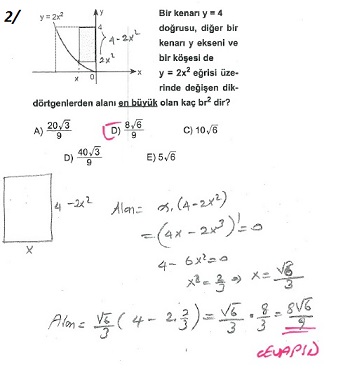 2/
y = 2x²
y
4
4 - 2x²
2x²
x
0
x
Bir kenarı y = 4
doğrusu, diğer bir
kenarı y ekseni ve
bir köşesi de
y = 2x² eğrisi üze-
rinde değişen dik-
dörtgenlerden alanı en büyük olan kaç br² dir?
A) 20√3/9
D) 8√6/9
C) 10√6
D) 40√3/9
E) 5√6
4 - 2x²
x
Alan = x.(4-2x²)
= (4x - 2x³)' = 0
4 - 6x² = 0
x² = 2/3 ⇒ x = √6/3
Alan = √6/3 (4 - 2.2/3) = √6/3 . 8/3 = 8√6/9
CEVAP D